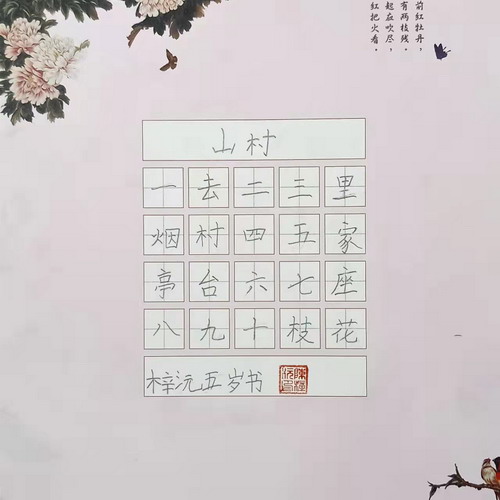 前红牡丹，
有两枝残。
起应吹尽，
红把火看。
山村
一去二三里
烟村四五家
亭台六七座
八九十枝花
梓沅五岁书